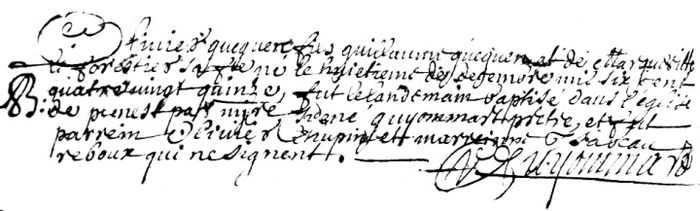 Olivier quequen fils guillaume quequen et de margueritte
le forestier sa fe né le huietieme de desemore mil six cent
quatre vingt quinze, fut le landemain baptisé dans l'eglise
de penestpar mire guyommart prêtre, et fut
parrein Olivier et marreinne
reboux qui ne signent.
Guyommard